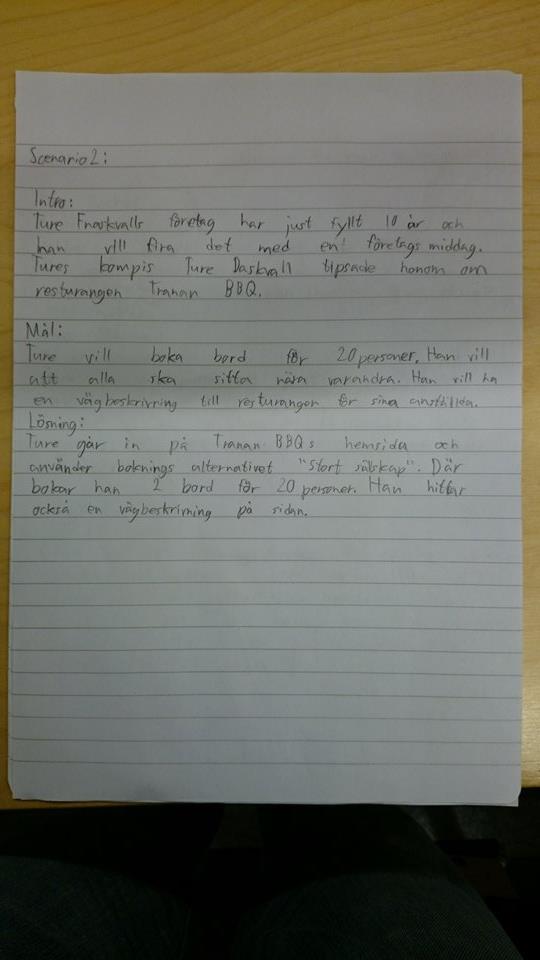 Scenario 2:
Intro:
Ture Fnaskvalls företag har just fyllt 10 år och
han vill fira det med en företags middag.
Tures kompis Ture Daskvall tipsade honom om
resturangen Tranan BBQ.
Mål:
Ture vill boka bord för 20 personer. Han vill
att alla ska sitta nära varandra. Han vill ha
en vägbeskrivning till resturangen för sina anställda.
Lösning:
Ture går in på Tranan BBQs hemsida och
använder boknings alternativet "Stort sälskap". Där
bokar han 2 bord för 20 personer. Han hittar
också en vägbeskrivning på sidan.